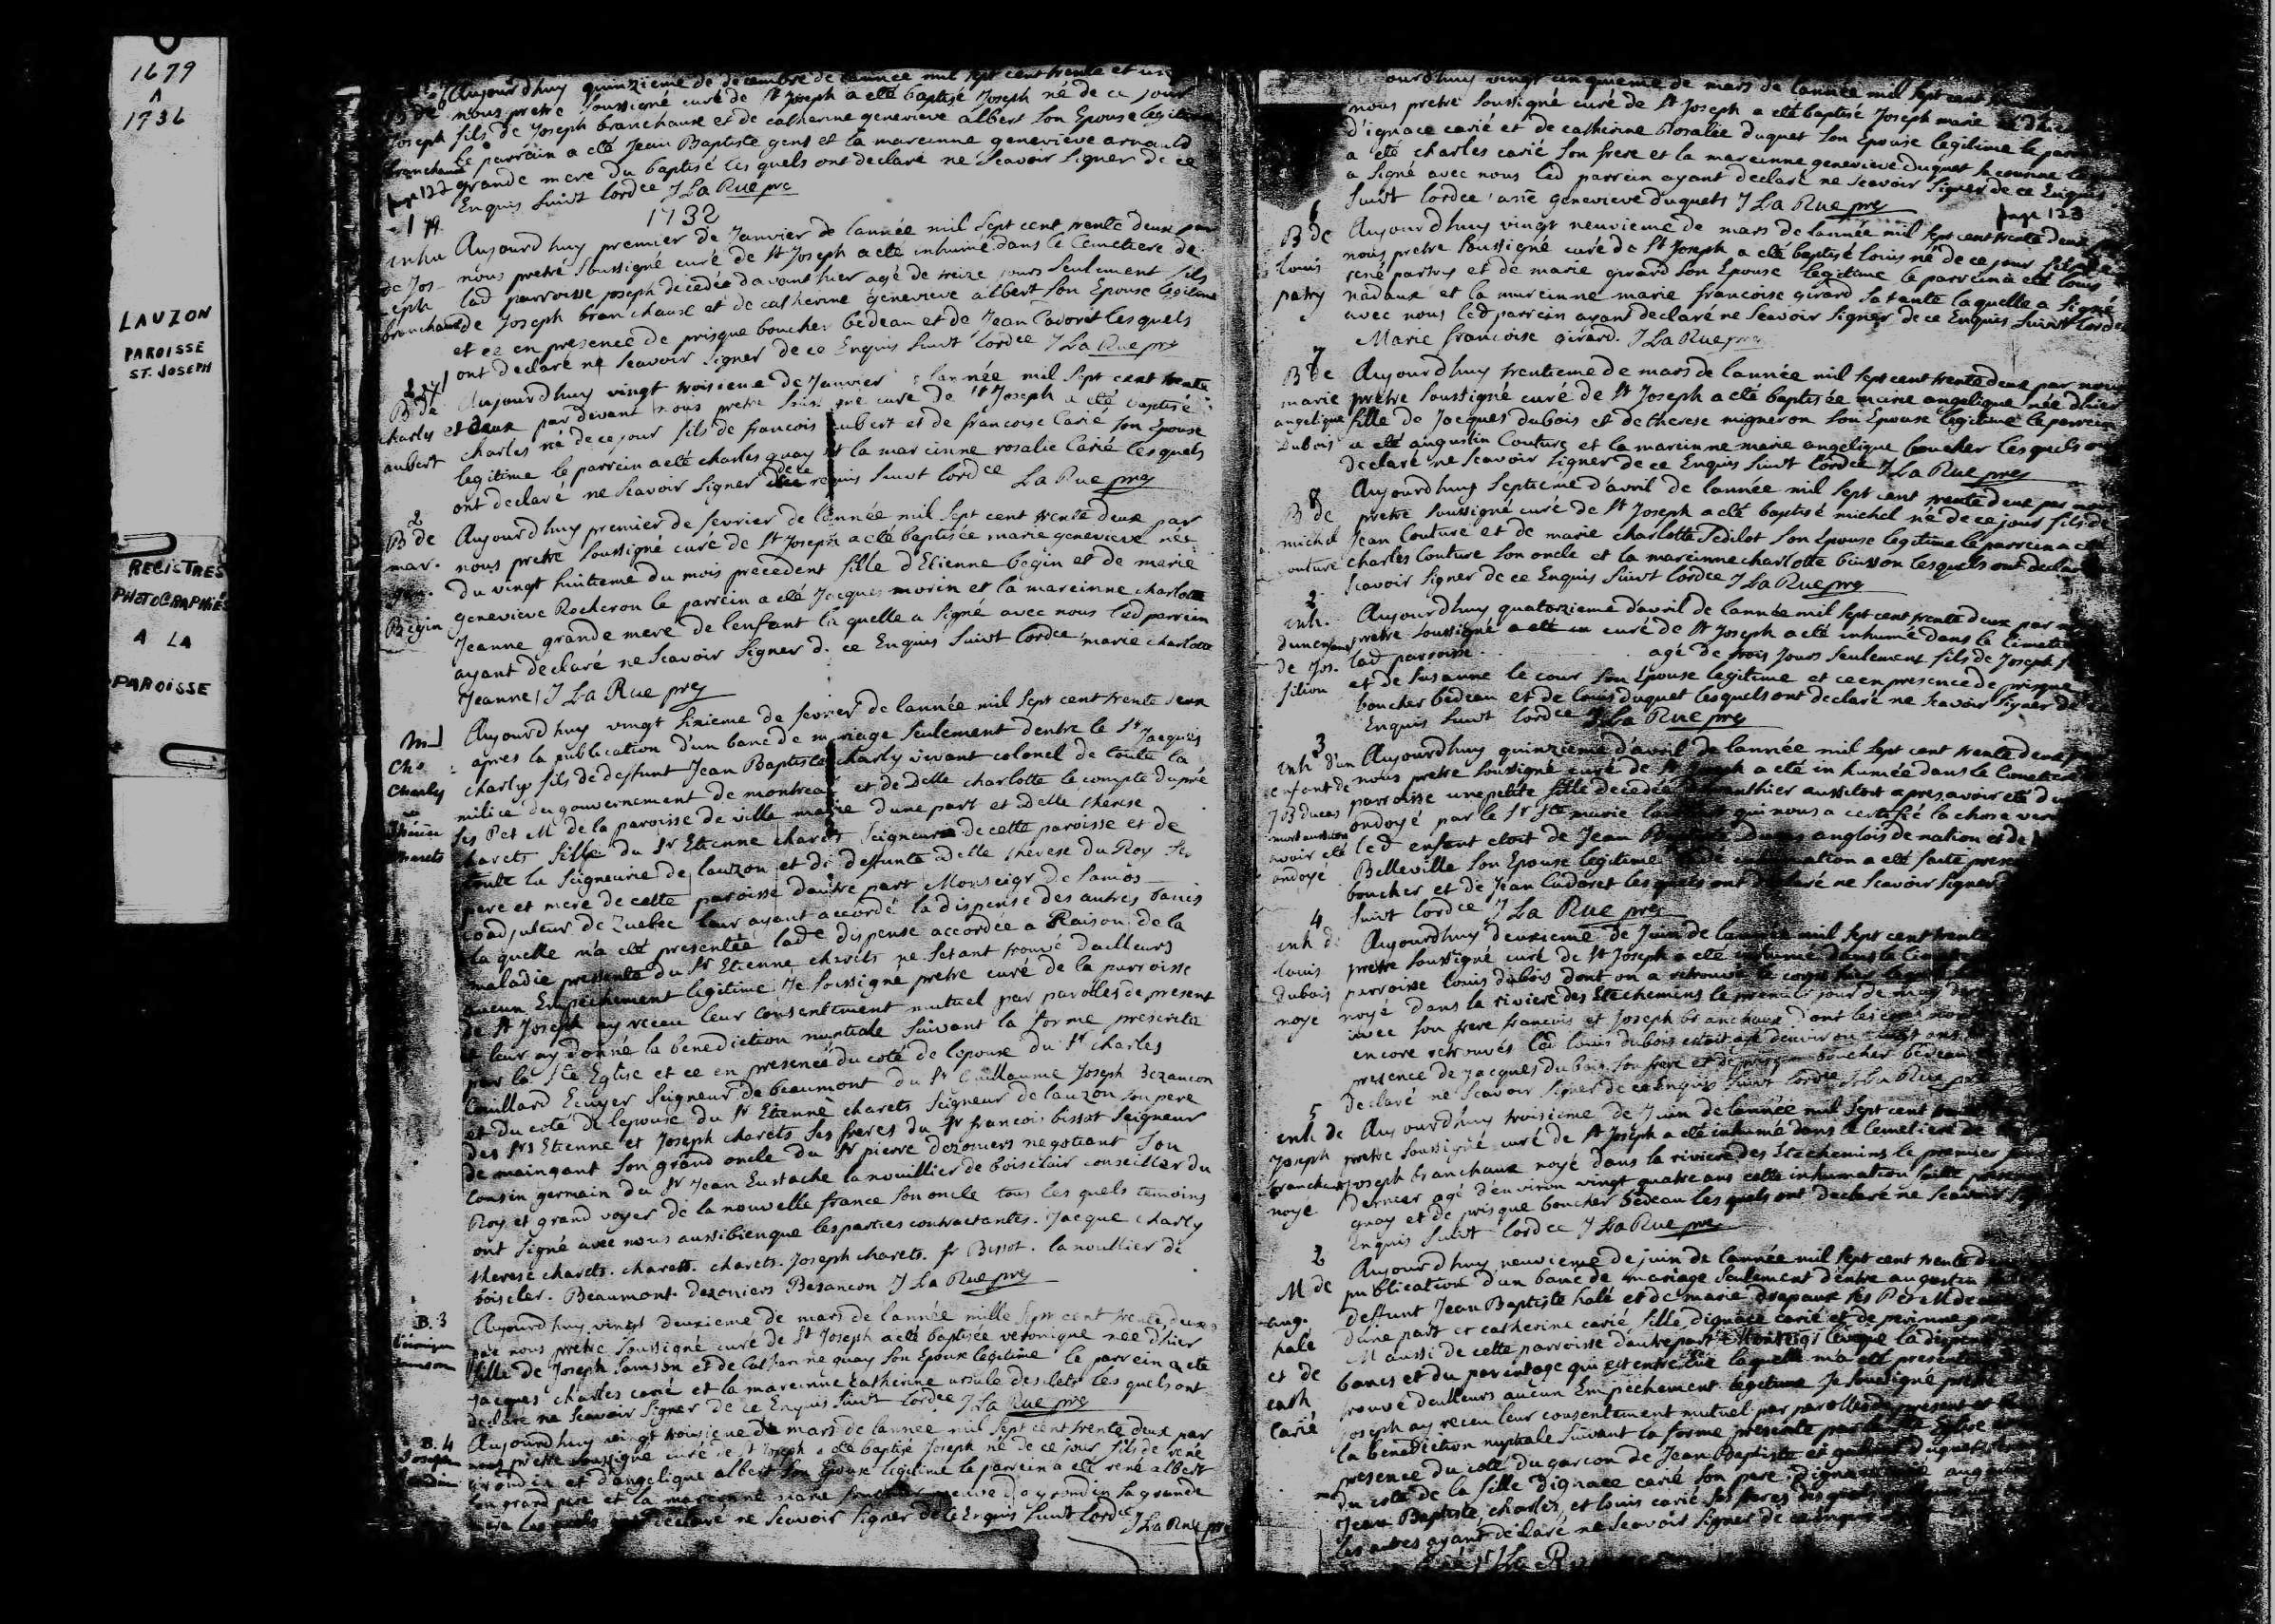 1679
A
1736
LAUZON
PAROISSE
ST. JOSEPH
REGISTRES
PHOTOGRAPHIÉS
A LA
PAROISSE
Aujourdhuy quinzieme de decembre de lannée mil sept cent trente et un
nous pretre soussigné curé de St Joseph a eté baptisé Joseph né de ce jour
Joseph fils de Joseph branchaux et de catherine genevieve albert son Epouse legitime
branchaux Le parrein a eté Jean Baptiste gens et la mareinne genevieve arnauld
page 122 grande mere du baptisé les quels ont declaré ne scavoir signer de ce
Enquis suivt lordce J La Rue pre
1732
inhu Aujourdhuy premier de Janvier de lannée mil sept cent trente deux par
de Jos- nous pretre soussigné curé de St Joseph a eté inhumé dans le Cemetiere de
eph lad parroisse joseph decedée davant hier agé de treize jours seulement fils
branchaux de Joseph branchaux et de catherine genevieve albert son Epouse legitime
et ce en presence de prisque boucher bedeau et de Jean Cadoret lesquels
ont declaré ne scavoir signer de ce Enquis suivt lordce J La Rue pre
B de Aujourdhuy vingt troisieme de Janvier lannée mil sept cent trente
charly et deux par devant nous pretre curé de St Joseph a eté baptisé
aubert charles né de ce jour fils de francois aubert et de francoise Carié son Epouse
legitime le parrein a eté charles quay et la mareinne rosalie Carié lesquels
ont declaré ne scavoir signer de ce requis suivt lordce La Rue pre
2
B de Aujourdhuy premier de fevrier de lannée mil sept cent trente deux par
mar. nous pretre soussigné curé de St Joseph a eté baptisée marie genevieve née
gen. du vingt huitieme du mois precedent fille d'Etienne begin et de marie
Begin genevieve Rocheron le parrein a eté Jacques morin et la mareinne charlotte
Jeanne grande mere de lenfant la quelle a signé avec nous led parrein
ayant declaré ne scavoir signer de ce Enquis suivt lordce marie charlotte
Jeanne J La Rue pre
M 1 Aujourdhuy vingt sixieme de fevrier de lannée mil sept cent trente deux
Chs apres la publication d'un banc de mariage seulement dentre le Sr Jacques
Charly charly fils de deffunt Jean Baptiste charly vivant colonel de toute la
milice du gouvernement de montreal et de Delle charlotte le compte dupré
ses P et M de la paroisse de ville marie dune part et Delle therese
charets fille du Sr Etienne charets seigneur de cette paroisse et de
toute la seigneurie de lauzon et de deffunte Delle therese Du Roy ses
pere et mere de cette paroisse dautre part Monseigr de Samos
coadjuteur de Quebec leur ayant accordé la dispense des autres bancs
la quelle m'a eté presentée lade dispense accordée a Raison de la
maladie presente du Sr Etienne charets ne setant trouvé dailleurs
aucun Empechement legitime Je soussigné pretre curé de la parroisse
de St Joseph ay receu leur consentement mutuel par parolles de present
et leur ay donné la benediction nuptiale suivant la forme prescrite
par la Ste Eglise et ce en presence du coté de lepoux du Sr charles
Couillard Ecuyer seigneur de beaumont du Sr Guillaume Joseph Bezancon
et du coté de lepouse du Sr Etienne charets seigneur de lauzon son pere
des Srs Etienne et Joseph charets ses freres du Sr francois bissot seigneur
de maingant son grand oncle du Sr pierre dezoniers negotiant son
Cousin germain du Sr Jean Eustache lanouillier de boisclair conseiller du
Roy et grand voyer de la nouvelle france son oncle tous les quels temoins
ont signé avec nous aussibienque lesparties contractantes. Jacque charly
therese charets. charets. charets. Joseph charets. fr Bissot. lanoullier de
boiscler. Beaumont dezoniers Besancon J La Rue pre
B. 3 Aujourdhuy vingt deuxieme de mars de lannée mille sept cent trente deux
Véronique par nous pretre soussigné curé de St Joseph a eté baptisée veronique née d'hier
samson fille de Joseph Samson et de Catherine quay son Epouse legitime le parrein a eté
Jacques charles carié et la mareinne catherine ursule deslets les quels ont
declaré ne scavoir signer de ce Enquis suivt lordce J La Rue pre
B. 4 Aujourdhuy vingt troisieme de mars de lannée mil sept cent trente deux par
Joseph nous pretre soussigné curé de St Joseph a eté baptisé Joseph né de ce jour fils de rené
et d'angelique albert son Epouse legitime le parrein a eté rené albert
son grand pere et la mareinne marie sa grande
mere les quels ont declaré ne scavoir signer de ce Enquis suivt lordce J La Rue pre
ourdhuy vingt cinquieme de mars de lannée mil sept cent
nous pretre soussigné curé de St Joseph a eté baptisé Joseph marie né d'hier
d'ignace carié et de catherine Rosalie duquet son Epouse legitime le par
a eté charles carié son frere et la mareinne genevieve duquet sa cousine
a signé avec nous led parrein ayant declaré ne scavoir signer de ce Enquis
suivt lordce genevieve duquets J La Rue pre
page 123
6
B de Aujourdhuy vingt neuvieme de mars de lannée mil sept cent trente deux
louis nous pretre soussigné curé de St Joseph a eté baptisé louis né de ce jour fils de
patry rené partry et de marie girard son Epouse legitime le parrein a eté louis
nadaux et la mareinne marie francoise girard sa tante laquelle a signé
avec nous led parrein ayant declaré ne scavoir signer de ce Enquis suivt lordce
Marie francoise girard. J La Rue pre
7
B de Aujourdhuy trentieme de mars de lannée mil sept cent trente deux par nous
marie pretre soussigné curé de St Joseph a eté baptisée marie angelique née dhier
angelique fille de Jacques dubois et de therese migneron son Epouse legitime le parrein
Dubois a eté augustin Couture et la mareinne marie angelique boucher lesquels ont
declaré ne scavoir signer de ce Enquis suivt lordce J La Rue pre
8 Aujourdhuy septieme d'avril de lannée mil sept cent trente deux par nous
B de pretre soussigné curé de St Joseph a eté baptisé michel né de ce jour fils de
michel Jean Couture et de marie charlotte Sedilot son Epouse legitime le parrein a eté
outure charles Couture son oncle et la mareinne charlotte buisson lesquels ont declaré
scavoir signer de ce Enquis suivt lordce J La Rue pre
2
inh. Aujourdhuy quatorzieme d'avril de lannée mil sept cent trente deux par
dun enfant pretre soussigné a eté in curé de St Joseph a eté inhumé dans le Cimetiere
de Jos. lad parroisse agé de trois jours seulement fils de Joseph
filion et de Susanne le cour son Epouse legitime et ce en presence de prisque
boucher bedeau et de louis duquet lesquels ont declaré ne scavoir signer de
Enquis suivt lordce J La Rue pre
3
inh d'un Aujourdhuy quinzieme d'avril de lannée mil sept cent trente deux
enfant de nous pretre soussigné curé de St Joseph a eté inhumée dans le Cimetiere
JB ducas parroisse une petite fille decedée davanthier aussitost apres avoir eté
mort aussitost ondoyé par le Sr Ste marie qui nous a certifié la chose
avoir eté led enfant etoit de Jean Baptiste anglois de nation et de
ondoyé Belleville son Epouse legitime a eté faite
boucher et de Jean Cadoret lesquels ont declaré ne scavoir signer
suivt lordce J La Rue pre
4
inh de Aujourdhuy deuxieme de Juin de lannée mil sept cent trente
louis pretre soussigné curé de St Joseph a eté inhumé dans le Cimetiere
dubois parroisse louis dubois dont on a retrouvé le corps hier
noye noyé dans la riviere des Etechemins le premier jour de may
avec son frere francois et Joseph branchaux dont les corps
encore retrouvés led louis dubois estoit agé denviron vingt ans
presence de Jacques dubois son frere et de prisque boucher bedeau
declaré ne scavoir signer de ce Enquis suivt lordce J La Rue pre
5
inh de Aujourdhuy troisieme de Juin de lannée mil sept cent
Joseph pretre soussigné curé de St Joseph a eté inhumé dans le Cemetiere de
branchaux joseph branchaux noyé dans la riviere des Etechemins le premier
noyé dernier agé d'environ vingt quatre ans cette inhumation faite
quay et de prisque boucher bedeau les quels ont declaré ne scavoir
Enquis suivt lordce J La Rue pre
2
M de Aujourdhuy neuvieme de juin de lannée mil sept cent trente
publication d'un banc de mariage seulement d'entre augustin
aug. deffunt Jean Baptiste halé et de marie drapaux ses P et M de
hale dune part et catherine carié fille dignace carié et de perinne
et de M aussi de cette parroisse dautre part Monseigr leveque la dispense
cath bancs et du parentage qui est entre eux laquelle m'a eté presentée
Carié trouvé dailleurs aucun Empechement legitime Je soussigné pretre
joseph ay receu leur consentement mutuel par parolles de present et
la benediction nuptiale suivant la forme prescrite par la Ste Eglise
presence du coté du garcon de Jean Baptiste
du coté de la fille d'ignace carié son pere
Jean Baptiste, charles, et louis carié ses freres
les autres ayant declaré ne scavoir signer de ce Enquis
J La Rue